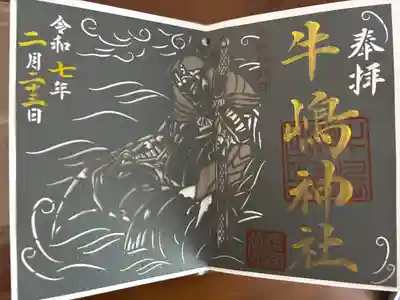 奉拝
牛嶋神社
令和七年
二月二十三日